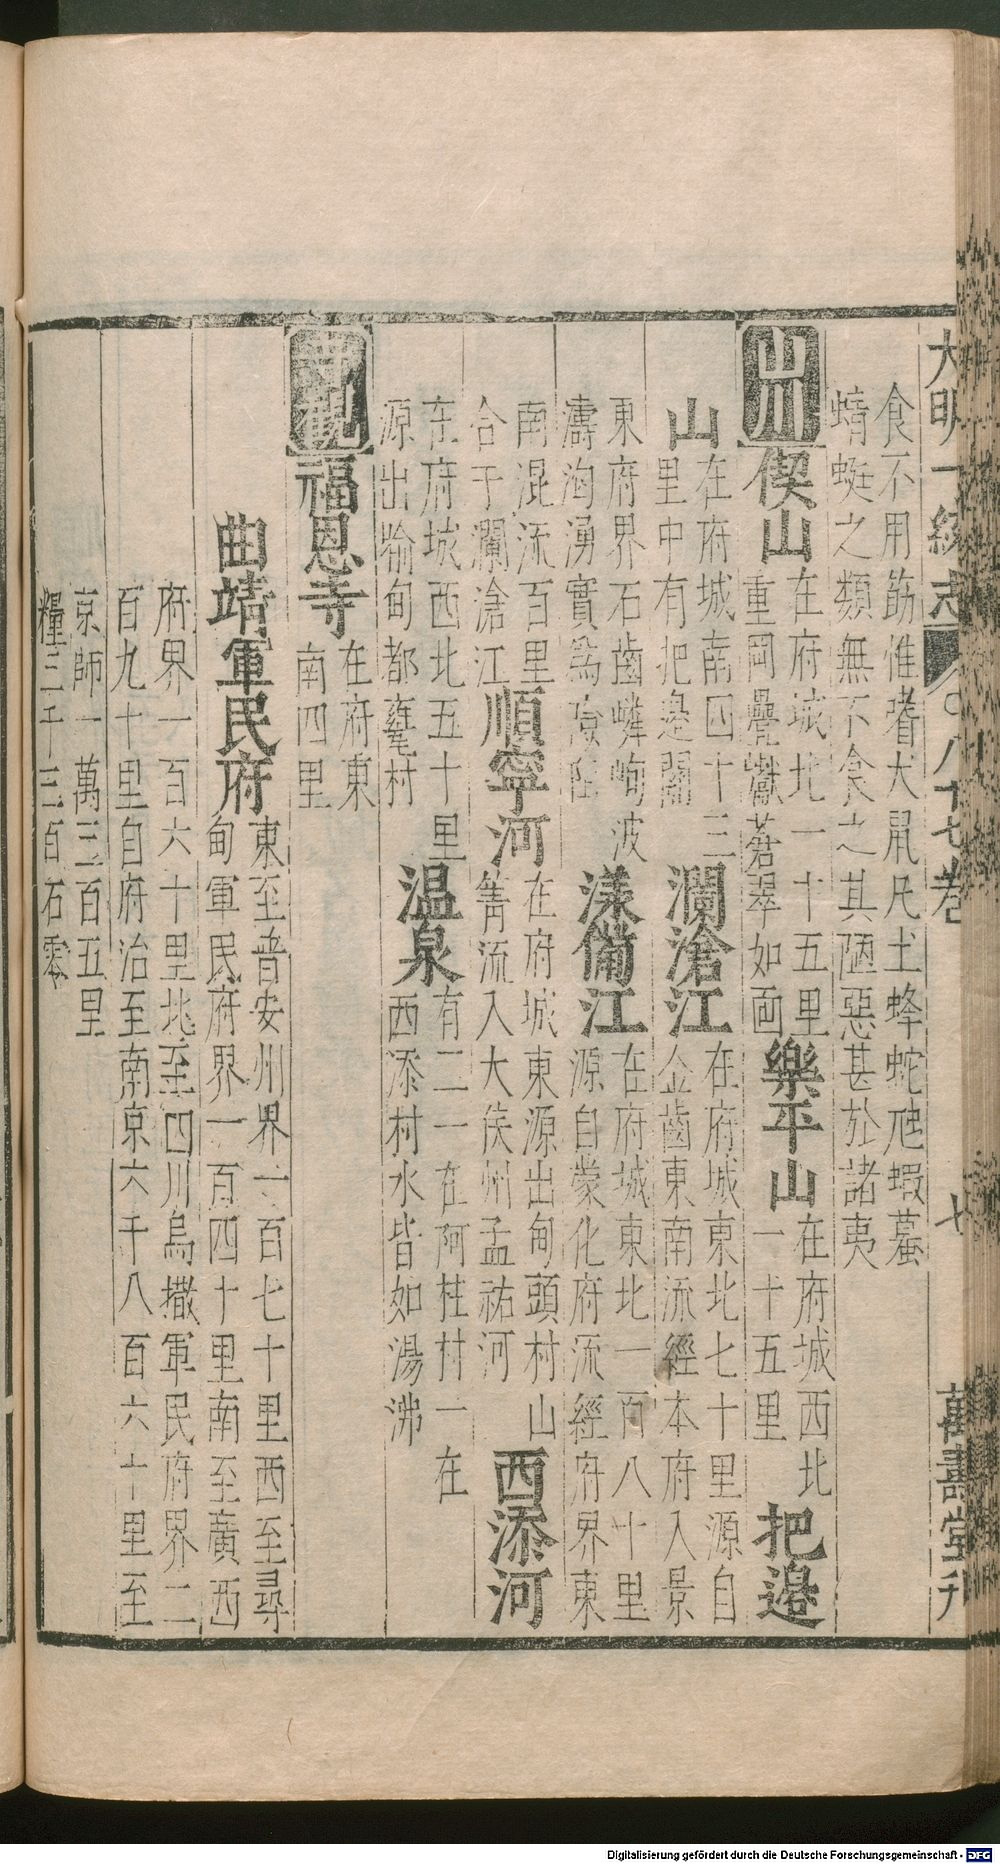 大明一統志 八十七卷 七 萬壽堂刋
食不用筯惟嗜犬鼠尺土蜂蛇虺蝦蟇
蜻蜓之類無不食之其陋惡甚於諸夷
山川 偰山 在府城北一十五里重岡疊巘蒼翠如畵 樂平山 在府城西北一十五里 把邊
山 在府城南四十三里中有把邊關 瀾滄江 在府城東北七十里源自金齒東南流經本府入景
東府界石齒嶙峋波濤洶湧實爲險阻 漾備江 在府城東北一百八十里源自蒙化府流經府界東
南混流百里合于瀾滄江 順寧河 在府城東源出甸頭村山箐流入大侯州孟祐河 西添河
在府城西北五十里源出喻甸都𦉈村 温泉 有二一在阿柱村一在西添村水皆如湯沸
寺觀 福恩寺 在府東南四里
曲靖軍民府 東至普安州界一百七十里西至尋甸軍民府界一百四十里南至廣西
府界一百六十里北至四川烏撒軍民府界二百九十里自府治至南京六千八百六十里至
京師一萬三百五里
糧三千三百石零
Digitalisierung gefördert durch die Deutsche Forschungsgemeinschaft - DFG